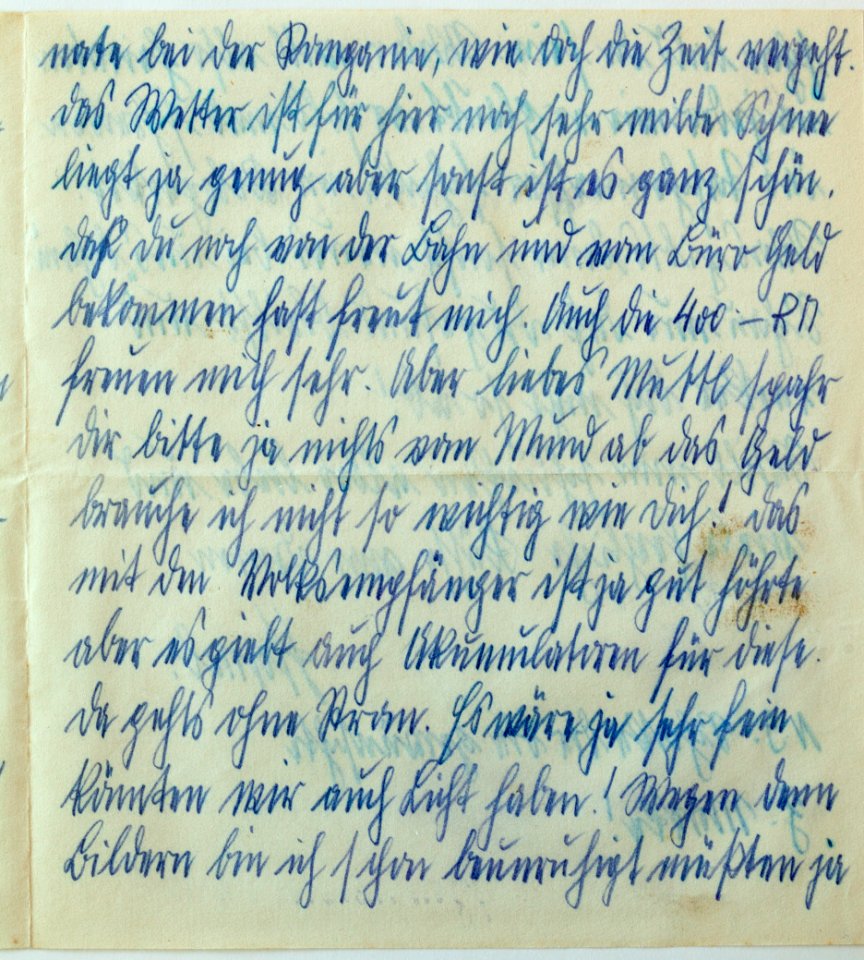 nate bei der Kompanie, wie doch die Zeit vergeht.
Das Wetter ist für hier noch sehr milde Schnee
liegt ja genug aber sonst ist es ganz schön.
daß du noch von der Bahn und vom Büro Geld
bekommen hast freut mich. Auch die 400.– RM
freuen mich sehr. Aber liebes Muttl spahr
dir bitte ja nichts vom Mund ab das Geld
brauche ich nicht so wichtig wie dich! Das
mit den Volksempfänger ist ja gut
aber es giebt auch Akumulatoren für diese.
Da gehts ohne Strom. Es wäre ja sehr fein
könnten wir auch Licht haben! Wegen denn
Bildern bin ich schon beunruhigt müßten ja